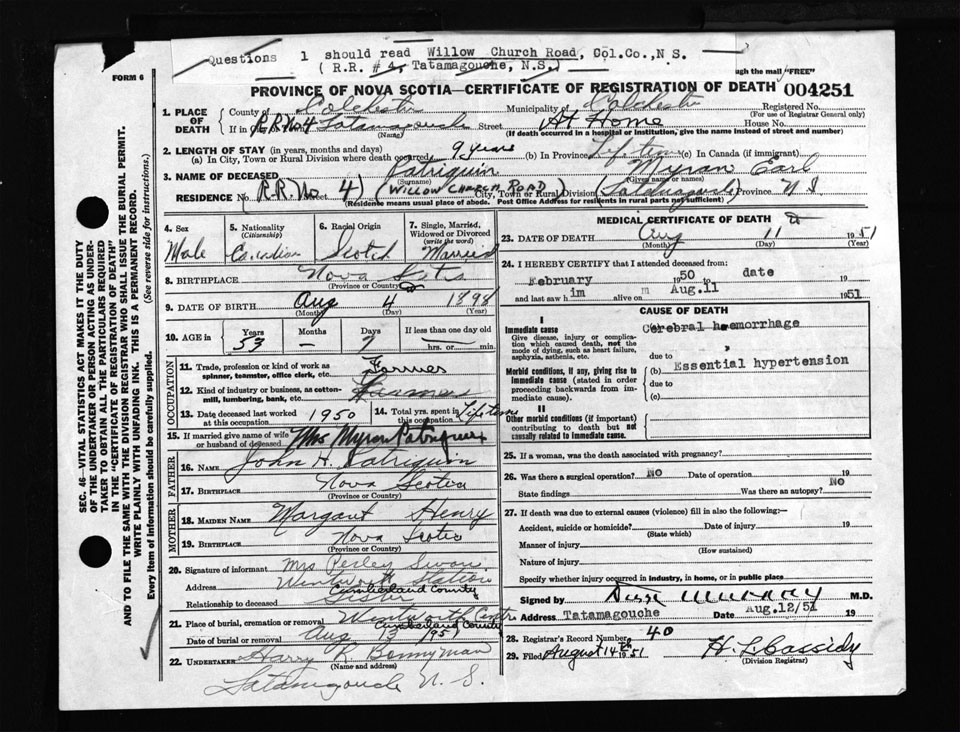 Questions 1 should read Willow Church Road, Col.Co.,N S.
( R.R. # 4, Tatamagouche, N.S.)
FORM 6
ugh the mail "FREE"
PROVINCE OF NOVA SCOTIA—CERTIFICATE OF REGISTRATION OF DEATH 004251
1. PLACE OF DEATH County of Colchester Municipality of Colchester Registered No.
(For use of Registrar General only)
If in R.R. No 4 Tatamagouche Street At Home House No.
(Name) (If death occurred in a hospital or institution, give the name instead of street and number)
2. LENGTH OF STAY (in years, months and days)
(a) In City, Town or Rural Division where death occurred 9 years (b) In Province Lifetime (c) In Canada (if immigrant)
3. NAME OF DECEASED Patriquin Myron Earl
(Surname) (Given name or names)
RESIDENCE No R.R. No. Street 4) (WILLOW CHURCH ROAD) City, Town or Rural Division (Tatamagouche) Province N S
(Residence means usual place of abode. Post Office Address for residents in rural parts not sufficient)
4. Sex Male
5. Nationality (Citizenship) Canadian
6. Racial Origin Scotch
7. Single, Married, Widowed or Divorced (write the word) Married
8. BIRTHPLACE Nova Scotia
(Province or Country)
9. DATE OF BIRTH Aug 4 1898
(Month) (Day) (Year)
10. AGE in Years Months Days If less than one day old
53 — 7 hrs. or min.
OCCUPATION
11. Trade, profession or kind of work as spinner, teamster, office clerk, etc. Farmer
12. Kind of industry or business, as cotton-mill, lumbering, bank, etc.
13. Date deceased last worked at this occupation 1950
14. Total yrs. spent in this occupation Lifetime
15. If married give name of wife or husband of deceased Mrs Myron Patriquin
FATHER
16. NAME John H. Patriquin
17. BIRTHPLACE Nova Scotia
(Province or Country)
MOTHER
18. MAIDEN NAME Margaret Henry
19. BIRTHPLACE Nova Scotia
(Province or Country)
20. Signature of informant Mrs Perley Swan
Address Wentworth Station
Cumberland County
Relationship to deceased Sister
21. Place of burial, cremation or removal Wentworth Centre
Cumberland County
Date of burial or removal Aug 13 1951
22. UNDERTAKER Harry R. Bonnyman
(Name and address)
Tatamagouche N. S.
MEDICAL CERTIFICATE OF DEATH
23. DATE OF DEATH Aug 11 1951
(Month) (Day) (Year)
24. I HEREBY CERTIFY that I attended deceased from:
February 1950 to date 19
and last saw him alive on m Aug.11 1951
CAUSE OF DEATH
I
Immediate cause
Give disease, injury or complication which caused death, not the mode of dying, such as heart failure, asphyxia, asthenia, etc.
Cerebral haemorrhage
due to
Morbid conditions, if any, giving rise to immediate cause (stated in order proceeding backwards from immediate cause).
(b) Essential hypertension
due to
(c)
II
Other morbid conditions (if important) contributing to death but not causally related to immediate cause.
25. If a woman, was the death associated with pregnancy?
26. Was there a surgical operation? NO Date of operation 19
State findings Was there an autopsy? NO
27. If death was due to external causes (violence) fill in also the following:—
Accident, suicide or homicide? Date of injury 19
(State which)
Manner of injury
(How sustained)
Nature of injury
Specify whether injury occurred in industry, in home, or in public place
Signed by Murray M.D.
Address Tatamagouche Date Aug.12/51 19
28. Registrar's Record Number 40
29. Filed August 14th 1951 H. L. Cassidy
(Division Registrar)
SEC. 46—VITAL STATISTICS ACT MAKES IT THE DUTY
OF THE UNDERTAKER OR PERSON ACTING AS UNDER-
TAKER TO OBTAIN ALL THE PARTICULARS REQUIRED
IN THE "CERTIFICATE OF REGISTRATION OF DEATH"
AND TO FILE THE SAME WITH THE DIVISION REGISTRAR WHO SHALL ISSUE THE BURIAL PERMIT.
WRITE PLAINLY WITH UNFADING INK. THIS IS A PERMANENT RECORD.
Every item of information should be carefully supplied. (See reverse side for instructions.)